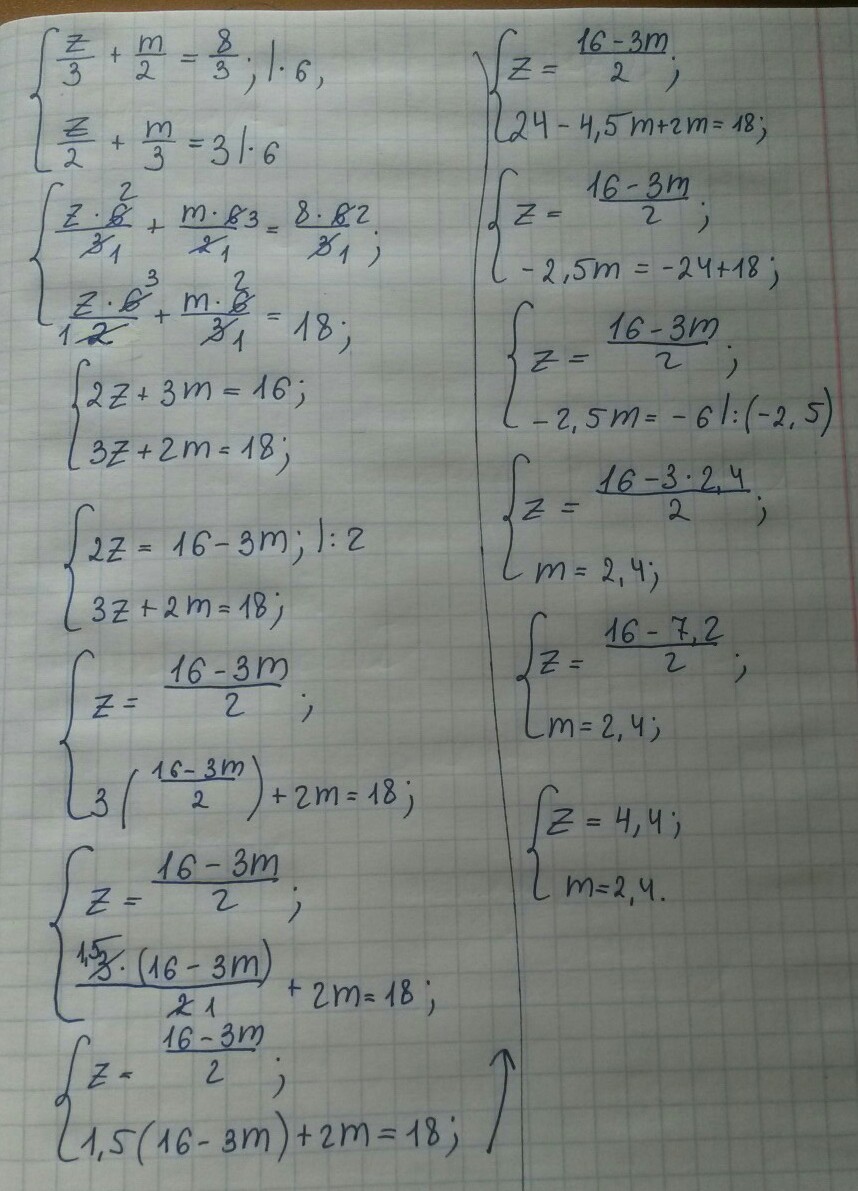 z/3 + m/2 = 8/3; |·6,
z/2 + m/3 = 3 |·6
z·6 2/3 1 + m·6 3/2 1 = 8·6 2/3 1;
z·6 3/1 2 + m·6 2/3 1 = 18;
2z + 3m = 16;
3z + 2m = 18;
2z = 16 - 3m; |:2
3z + 2m = 18;
z = (16 - 3m)/2;
3((16 - 3m)/2) + 2m = 18;
z = (16 - 3m)/2;
1,5 3·(16 - 3m)/2 1 + 2m = 18;
z = (16 - 3m)/2;
1,5(16 - 3m) + 2m = 18;
z = (16 - 3m)/2;
24 - 4,5m + 2m = 18;
z = (16 - 3m)/2;
-2,5m = -24 + 18;
z = (16 - 3m)/2;
-2,5m = -6 |:(-2,5)
z = (16 - 3·2,4)/2;
m = 2,4;
z = (16 - 7,2)/2;
m = 2,4;
z = 4,4;
m = 2,4.